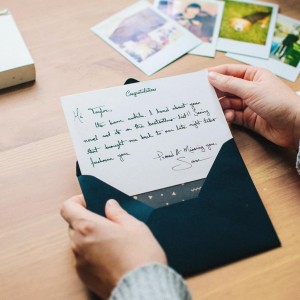 Congratulations
Hi Taylor,
the bann, while. I heard about your
novel set its on this bestseller list!! Seeing
that brought me back to our late night
freshman year.
Proud & Missing you,
Sam